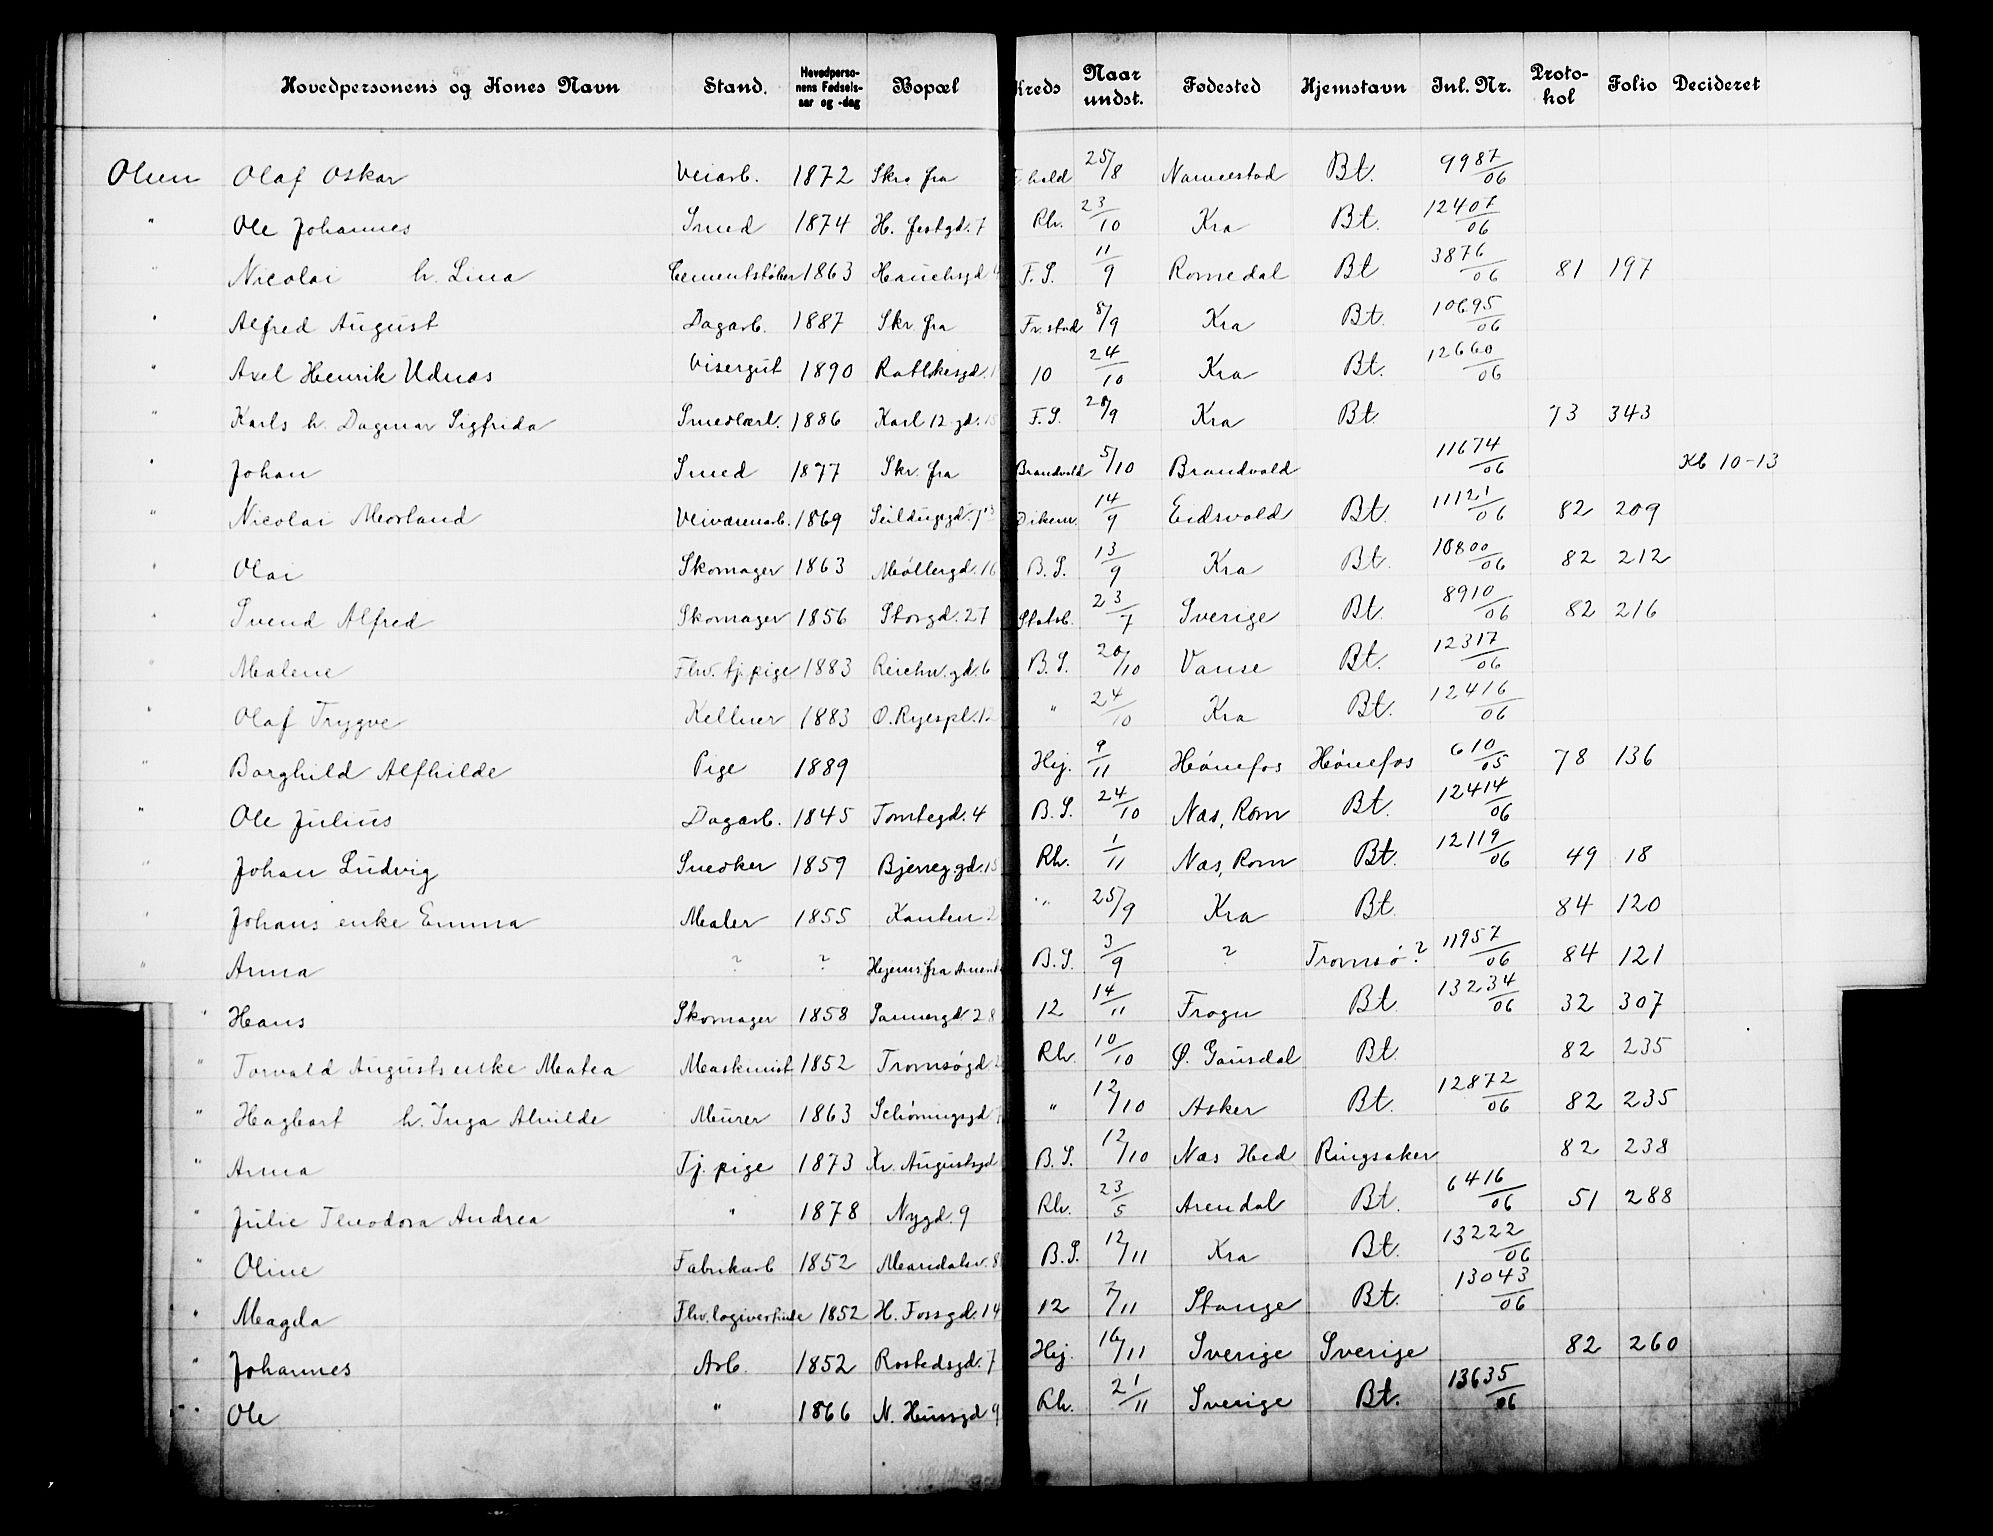 Hovedpersonens og Kones Navn Stand. Hovedperso-nens Fødsels-aar og -dag Bopæl Kreds Naar undst. Fødested Hjemstavn Inl. Nr. Proto-kol Folio Decideret
Olsen Olaf Oskar Veiarb. 1872 Skr. fra hold 25/8 Nannestad Bt. 9987/06
" Ole Johannes Smed 1874 H. festgd. 7 Rh. 23/10 Kra Bt. 12407/06
" Nicolai h. Lina Cementstøber 1863 Hauchsgd 4 F. S. 11/9 Romedal Bt 3876/06 81 197
" Alfred August Dagarb. 1887 Skr. fra Fr.stad 8/9 Kra Bt. 10695/06
" Axel Henrik Udnæs Visergut 1890 Rathkesgd. 10 24/10 Kra Bt. 12660/06
" Karls h. Dagmar Sigfrida Smedlærl. 1886 Karl 12 gd. 15 F. S. 28/9 Kra Bt. 73 343
" Johan Smed 1877 Skr. fra Brandvold 5/10 Brandvold 11674/06 Kb 10-13
" Nicolai Morland Veivæsenarb. 1869 Seildugsgd. Dikem. 14/9 Eidsvold Bt. 11121/06 82 209
" Olai Skomager 1863 Møllergd. 16 B. S. 13/9 Kra Bt. 10800/06 82 212
" Svend Alfred Skomager 1856 Storgd. 27 Statsb. 23/7 Sverige Bt. 8910/06 82 216
" Malene Fhv. tj. pige 1883 Reichw. gd. 6 B. S. 20/10 Vanse Bt. 12317/06
" Olaf Trygve Kellner 1883 O. Ryespl. 12 " 24/10 Kra Bt. 12416/06
" Borghild Alfhilde Pige 1889 Hej. 9/11 Hønefos Hønefos 610/05 78 136
" Ole Julius Dagarb. 1845 Tomtegd. 4 B. S. 24/10 Næs, Rom Bt. 12414/06
" Johan Ludvig Snedker 1859 Bjerreg.gd. 15 Rh. 1/11 Næs, Rom Bt. 12119/06 49 18
" Johans enke Emma Maler 1855 Kanten 2 " 25/9 Kra Bt. 84 120
" Anna ? ? Hjems. fra B. S. 3/9 ? Tromsø ? 11957/06 84 121
" Hans Skomager 1858 Sannergd 28 12 14/11 Frogn Bt 13234/06 32 307
" Torvald Augusts enke Matea Maskinist 1852 Tromsøgd. 2 Rh. 10/10 Ø. Gausdal Bt. 82 235
" Hagbart h. Inga Alvilde Murer 1863 Schøningsgd 7 " 12/10 Asker Bt. 12872/06 82 235
" Anna Tj. pige 1873 Kr. Augustsgd B. S. 12/10 Næs Hed Ringsaker 82 238
" Julie Theodora Andrea " 1878 Nygd. 9 Rh. 23/5 Arendal Bt. 6416/06 51 288
" Oline Fabrikarb 1852 Mandalsv. 8 B. S. 12/11 Kra Bt. 13222/06
" Magda Fhv. logivertinde 1852 H. Fossgd. 14 12 7/11 Stange Bt. 13043/06
" Johannes Arb. 1852 Rostedsgd. 7 Hej. 16/11 Sverige Sverige 82 260
" Ole " 1866 N. Hussgd 9 Rh. 21/11 Sverige Bt. 13635/06